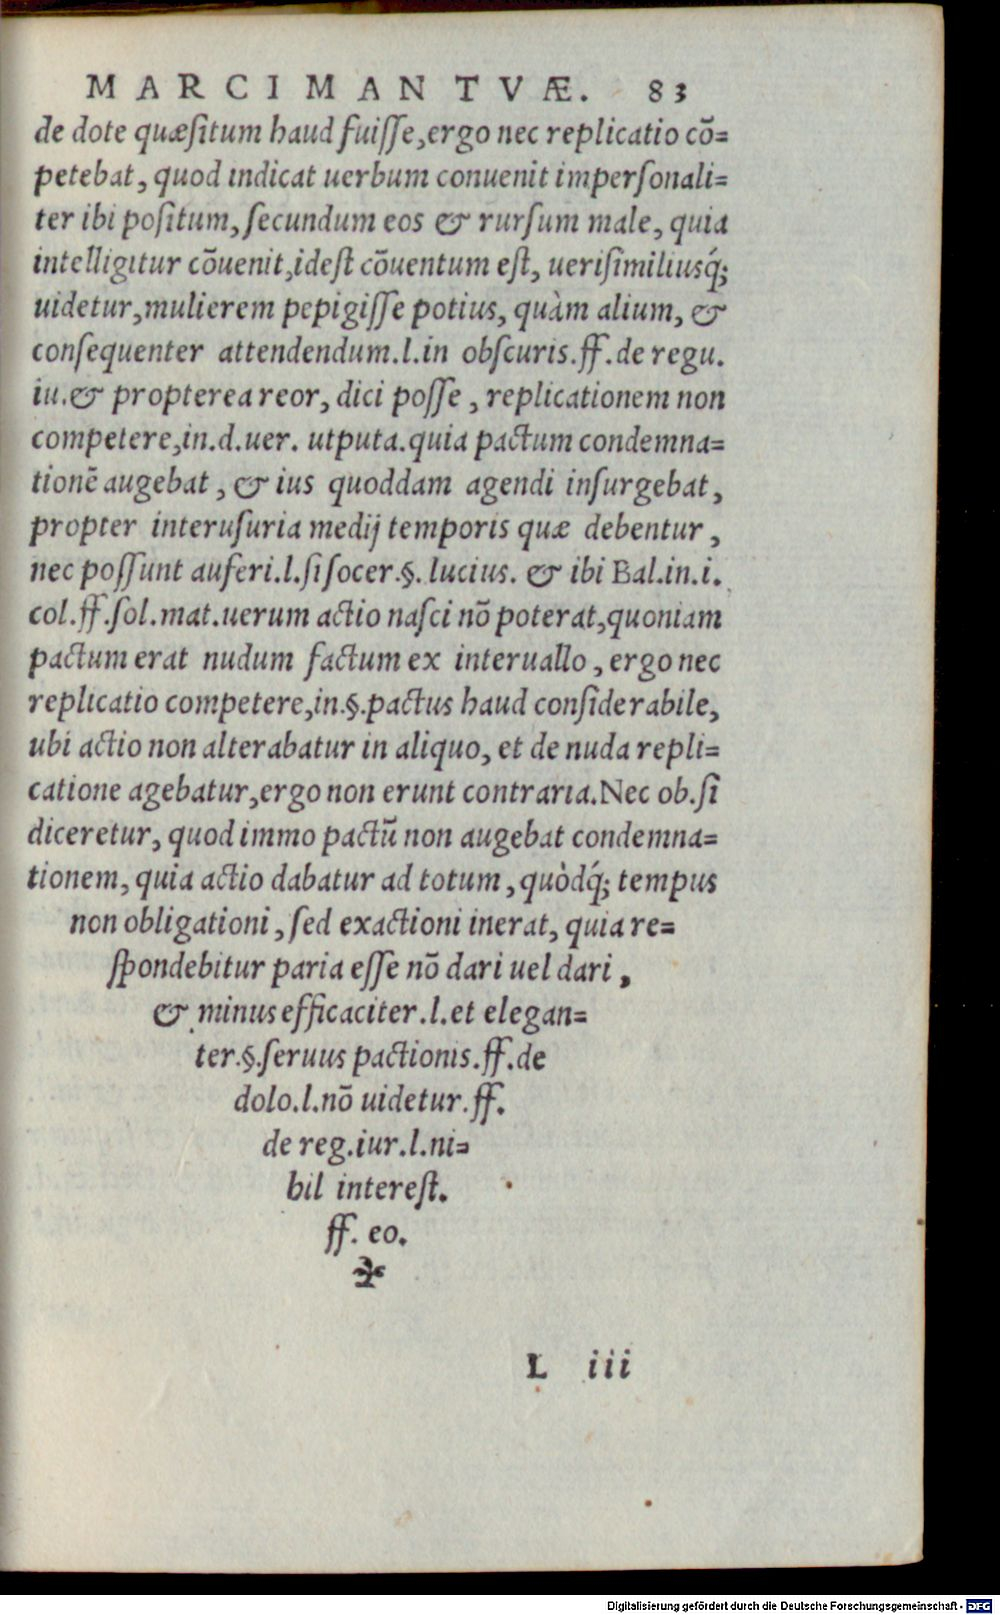 MARCI MANTVÆ. 83
de dote quæsitum haud fuisse, ergo nec replicatio cō=
petebat, quod indicat uerbum conuenit impersonali=
ter ibi positum, secundum eos & rursum male, quia
intelligitur cōuenit, idest cōuentum est, uerisimiliusq́;
uidetur, mulierem pepigisse potius, quàm alium, &
consequenter attendendum.l.in obscuris.ff.de regu.
iu.& propterea reor, dici posse, replicationem non
competere,in.d.uer. utputa.quia pactum condemna=
tionē augebat, & ius quoddam agendi insurgebat,
propter interusuria medij temporis quæ debentur,
nec possunt auferi.l.si socer.§. lucius. & ibi Bal.in.i.
col.ff.sol.mat.uerum actio nasci nō poterat,quoniam
pactum erat nudum factum ex interuallo, ergo nec
replicatio competere,in.§.pactus haud considerabile,
ubi actio non alterabatur in aliquo, et de nuda repli=
catione agebatur,ergo non erunt contraria.Nec ob.si
diceretur, quod immo pactū non augebat condemna=
tionem, quia actio dabatur ad totum, quòdq́; tempus
non obligationi, sed exactioni inerat, quia re=
spondebitur paria esse nō dari uel dari,
& minus efficaciter.l.et elegan=
ter.§.seruus pactionis.ff.de
dolo.l.nō uidetur.ff.
de reg.iur.l.ni=
hil interest.
ff. eo.
L iii
Digitalisierung gefördert durch die Deutsche Forschungsgemeinschaft - DFG